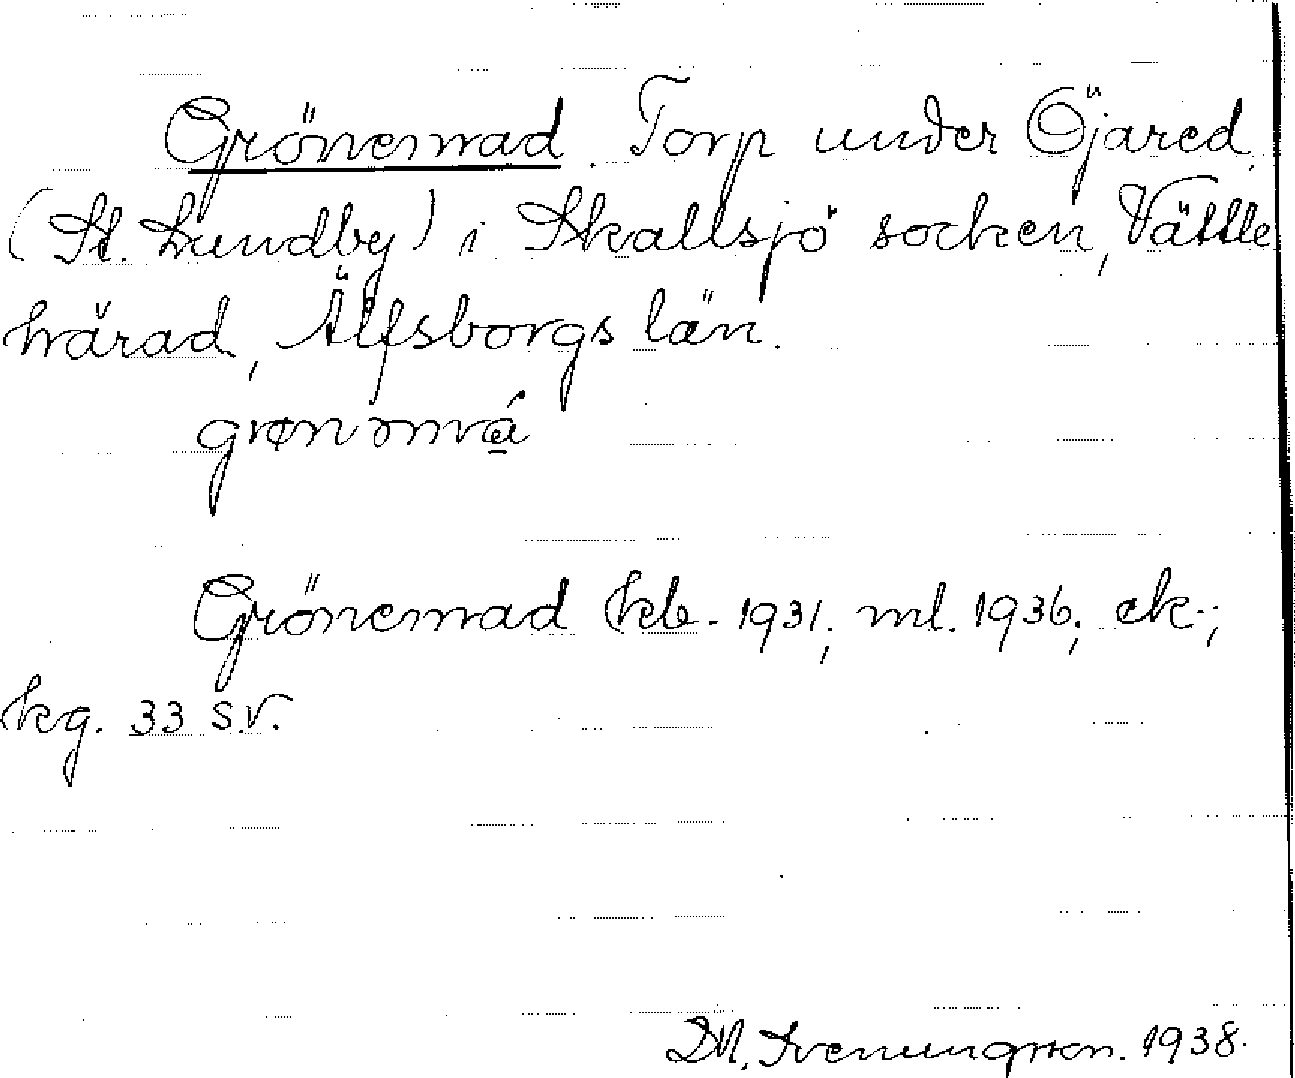 Grönemad. Torp under Öjared
(St. Lundby) i Skallsjö socken, Vättle
härad, Älfsborgs län.
Grönemad kb. 1931; ml. 1936; ek-;
kg. 33 s.v.
D.N. Svenungsson. 1938.